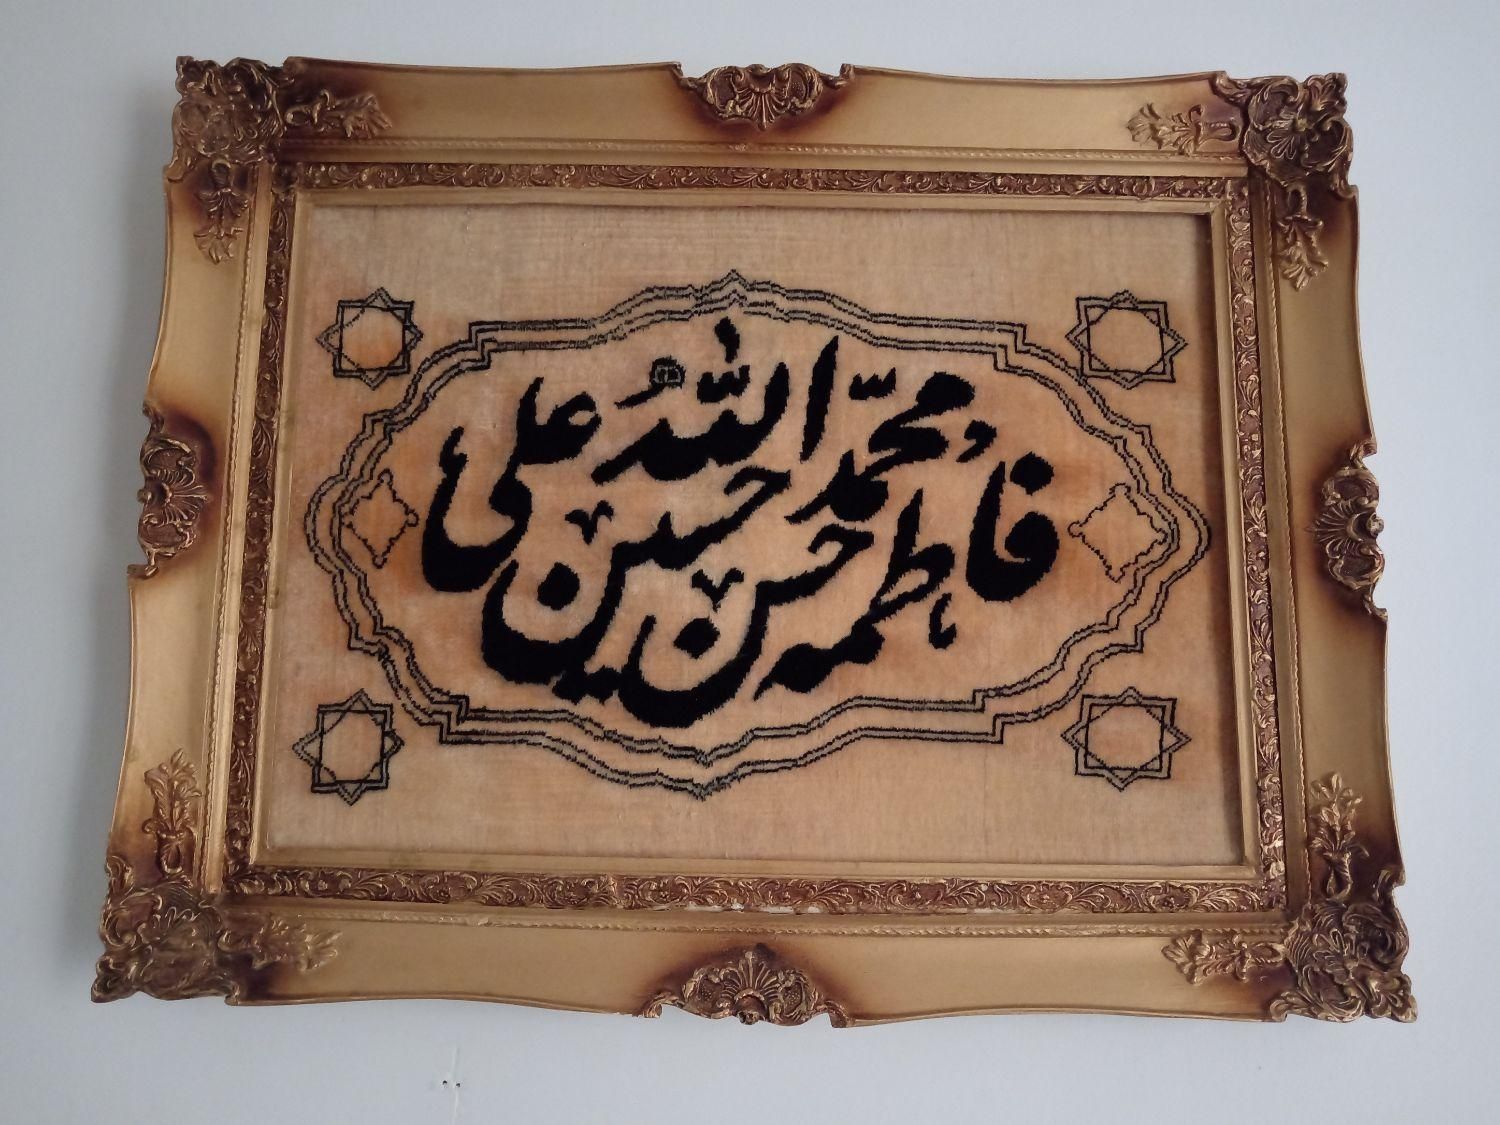 الله محمّد علی
فاطمه حسن حسین